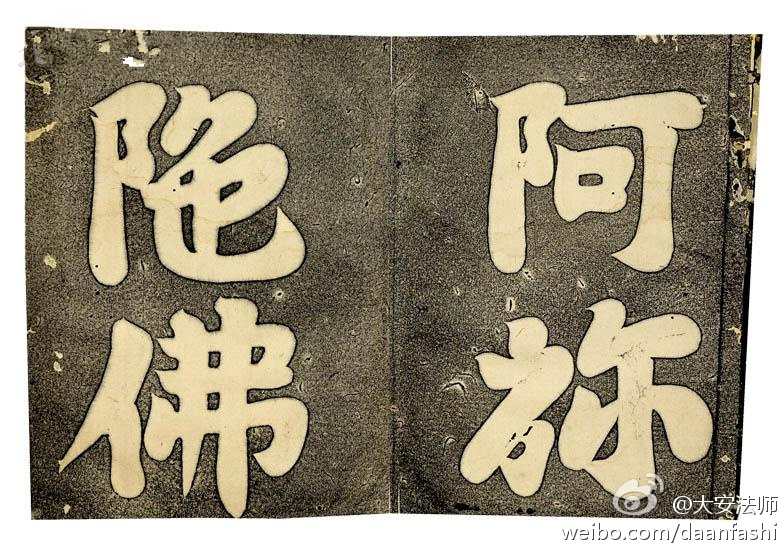 阿祢
陁佛
@大安法师
weibo.com/daanfashi